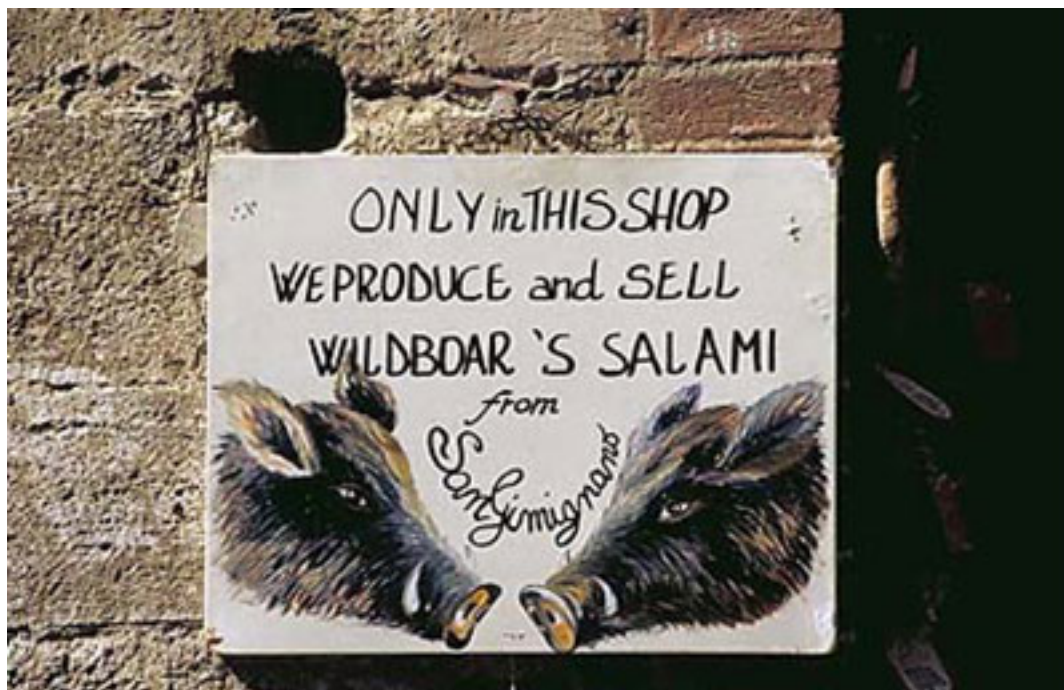 ONLY in THIS SHOP
WE PRODUCE and SELL
WILDBOAR 'S SALAMI
from
San Gimignano